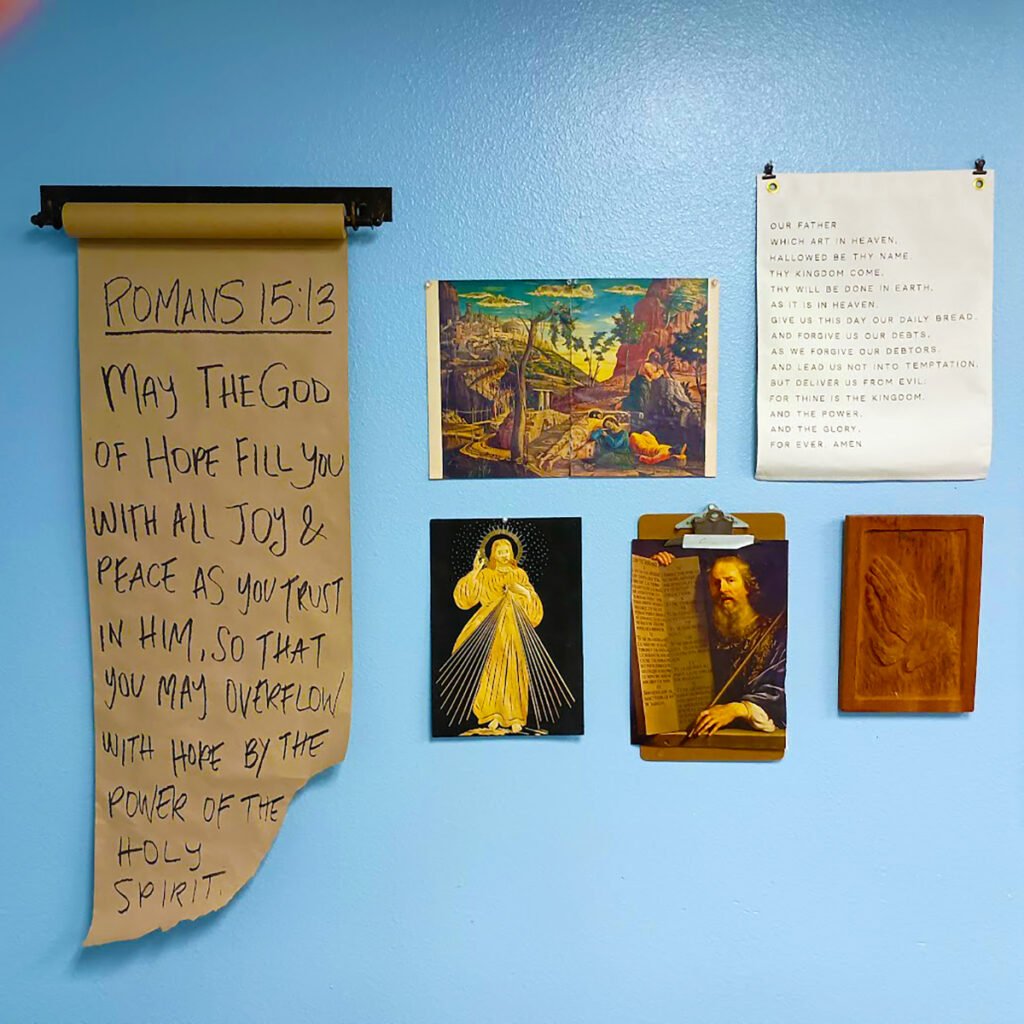 ROMANS 15:13
MAY THE GOD
OF HOPE FILL YOU
WITH ALL JOY &
PEACE AS YOU TRUST
IN HIM, SO THAT
YOU MAY OVERFLOW
WITH HOPE BY THE
POWER OF THE
HOLY
SPIRIT.
OUR FATHER
WHICH ART IN HEAVEN,
HALLOWED BE THY NAME.
THY KINGDOM COME.
THY WILL BE DONE IN EARTH,
AS IT IS IN HEAVEN.
GIVE US THIS DAY OUR DAILY BREAD.
AND FORGIVE US OUR DEBTS,
AS WE FORGIVE OUR DEBTORS.
AND LEAD US NOT INTO TEMPTATION,
BUT DELIVER US FROM EVIL:
FOR THINE IS THE KINGDOM,
AND THE POWER,
AND THE GLORY,
FOR EVER. AMEN